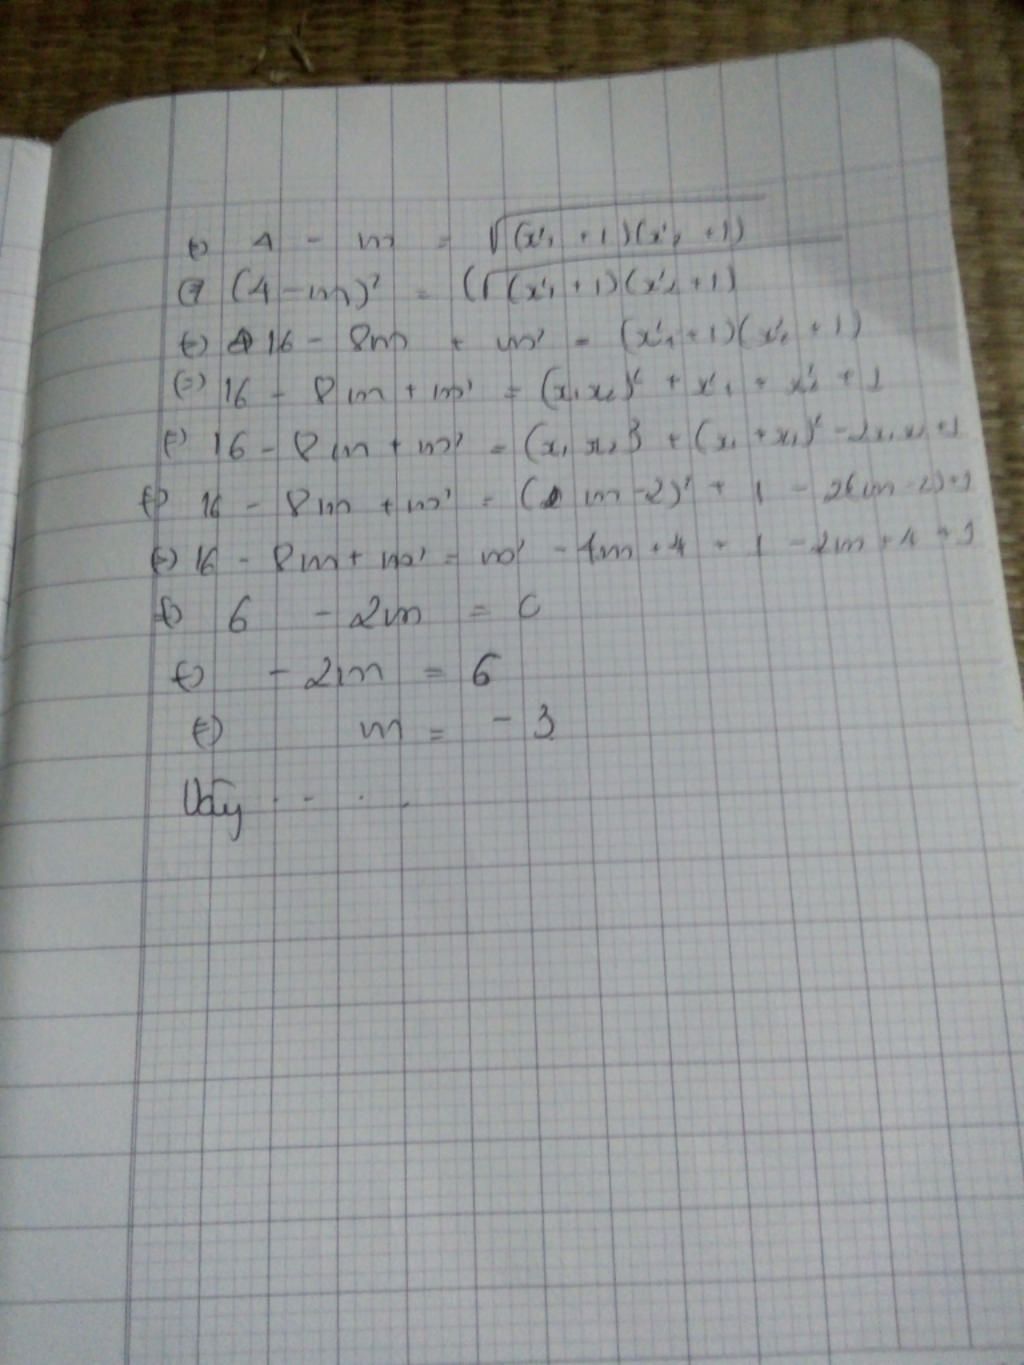 (=) 4 - m = √(x²₁ + 1)(x²₂ + 1)
(=) (4 - m)² = (√(x²₁ + 1)(x²₂ + 1)
(=) 16 - 8m + m² = (x²₁ + 1)(x²₂ + 1)
(=) 16 - 8m + m² = (x₁x₂)² + x²₁ + x²₂ + 1
(=) 16 - 8m + m² = (x₁x₂)² + (x₁ + x₂)² - 2x₁x₂ + 1
(=) 16 - 8m + m² = (m - 2)² + 1 - 2(m - 2) + 1
(=) 16 - 8m + m² = m² - 4m + 4 + 1 - 2m + 4 + 1
(=) 6 - 2m = 0
(=) - 2m = 6
(=) m = - 3
Vậy - - . .